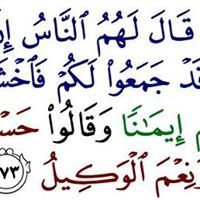 قَالَ لَهُمُ ٱلنَّاسُ إِنَّ
قَدۡ جَمَعُوا۟ لَكُمۡ فَٱخۡشَ
إِيمَـٰنًا وَقَالُوا۟ حَسۡ
وَنِعۡمَ ٱلۡوَكِيلُ ٧٣